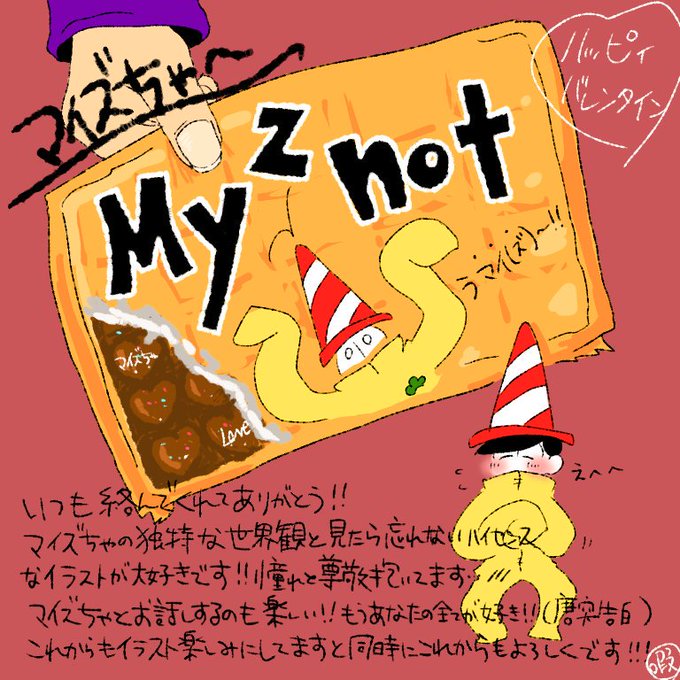 マイズちゃ〜
ハッピィ
バレンタイン
My z not
う、マイ(ズ)〜!!
マイズちゃ
Love
え〜〜
いつも絡んでくれてありがとう!!
マイズちゃの独特な世界観と見たら忘れないハイセンス
なイラストが大好きです!!憧れと尊敬抱いてます
マイズちゃとお話しするのも楽しい!!もうあなたの全てが好き!!(唐突告白)
これからもイラスト楽しみにしてますと同時にこれからもよろしくです!!!
暇